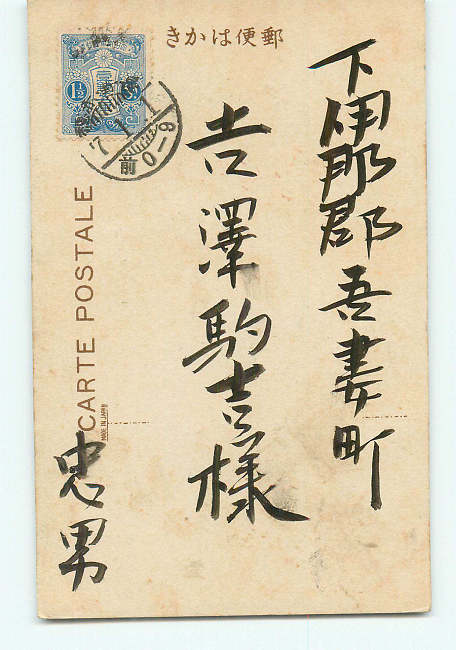 郵便はかき
下伊那郡吾妻町
吉澤駒吉様
忠男
CARTE POSTALE
MADE IN JAPAN
1½
7.1.1
前0-9